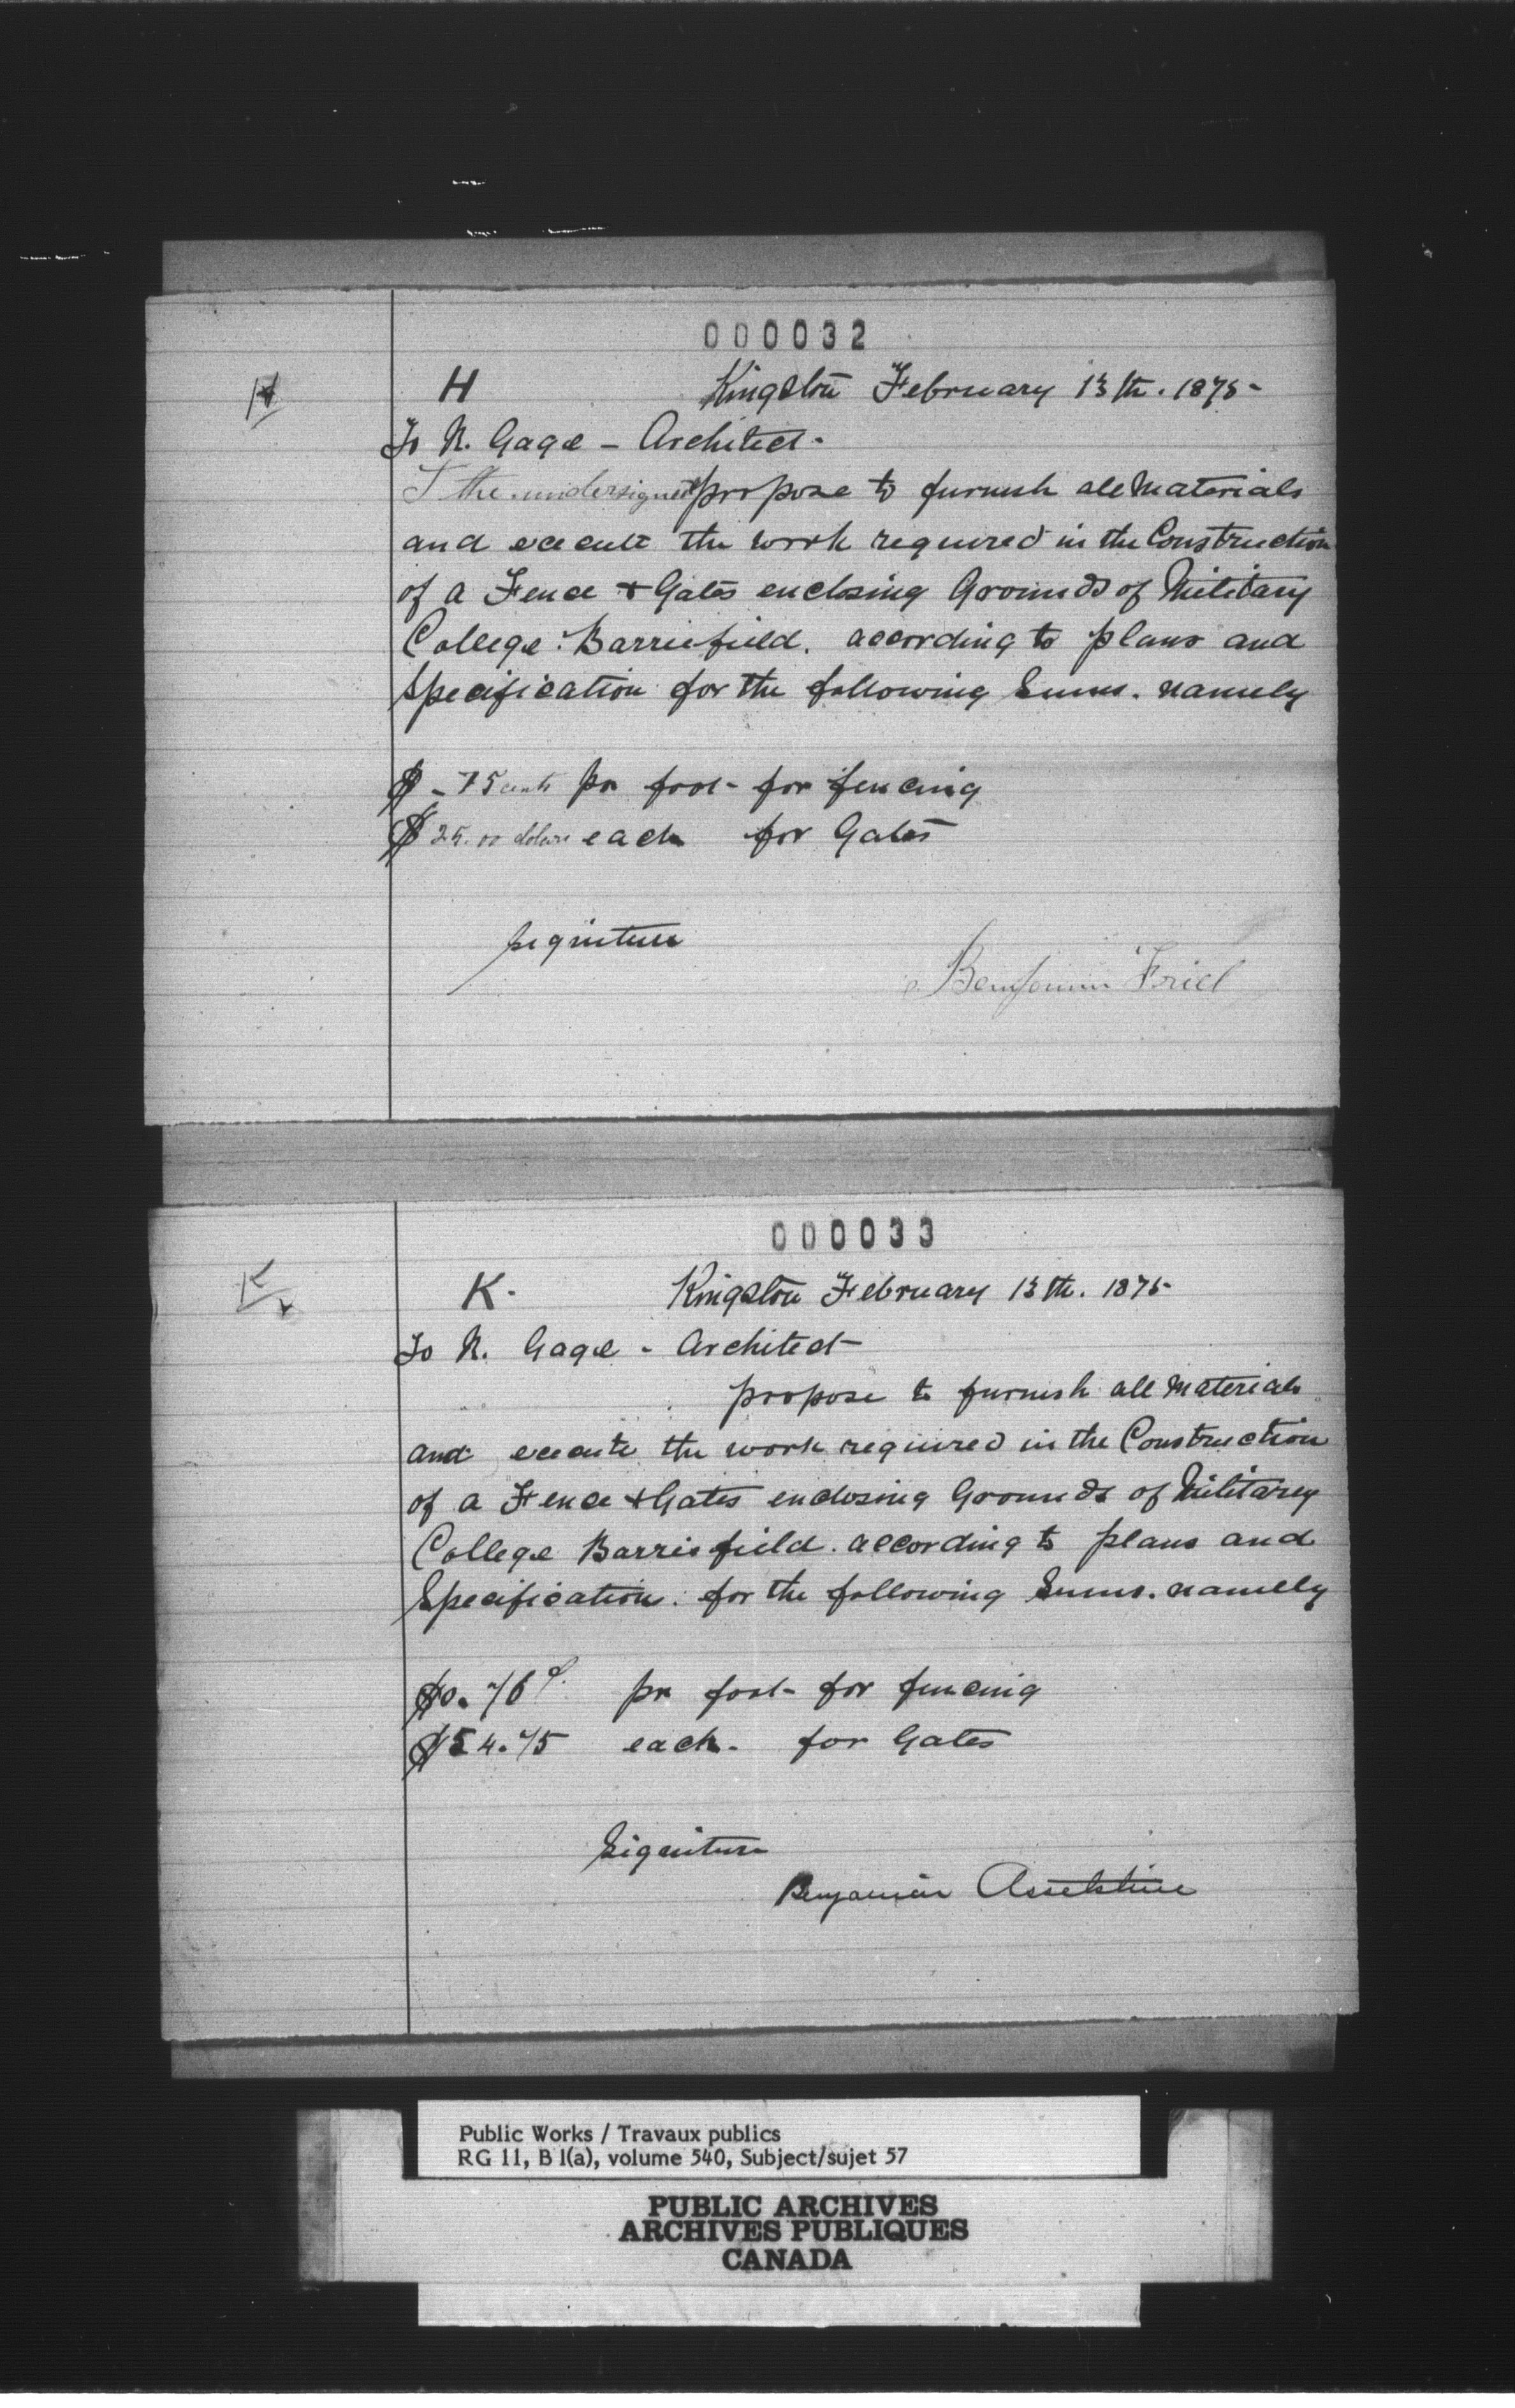 000032
H H Kingston February 13th. 1875-
To R. Gage - Architect.
I the undersigned propose to furnish all Materials
and execute the work required in the Construction
of a Fence + Gates enclosing Grounds of Military
College. Barriefield. according to plans and
Specification for the following Sums. namely
$ - 75 cents pr foot - for fencing
$ 25.00 dolars each for Gates
signiture
Benjamin Friel
000033
K K. Kingston February 13th. 1875-
To R. Gage - Architect -
propose to furnish all Materials
and execute the work required in the Construction
of a Fence + Gates enclosing Grounds of Military
College Barriefield. according to plans and
Specification. for the following Sums. namely
$0.76c. pr foot - for fencing
$54.75 each - for Gates
Signiture
Benjamin Asselstine
Public Works / Travaux publics
RG 11, B 1(a), volume 540, Subject/sujet 57
PUBLIC ARCHIVES
ARCHIVES PUBLIQUES
CANADA